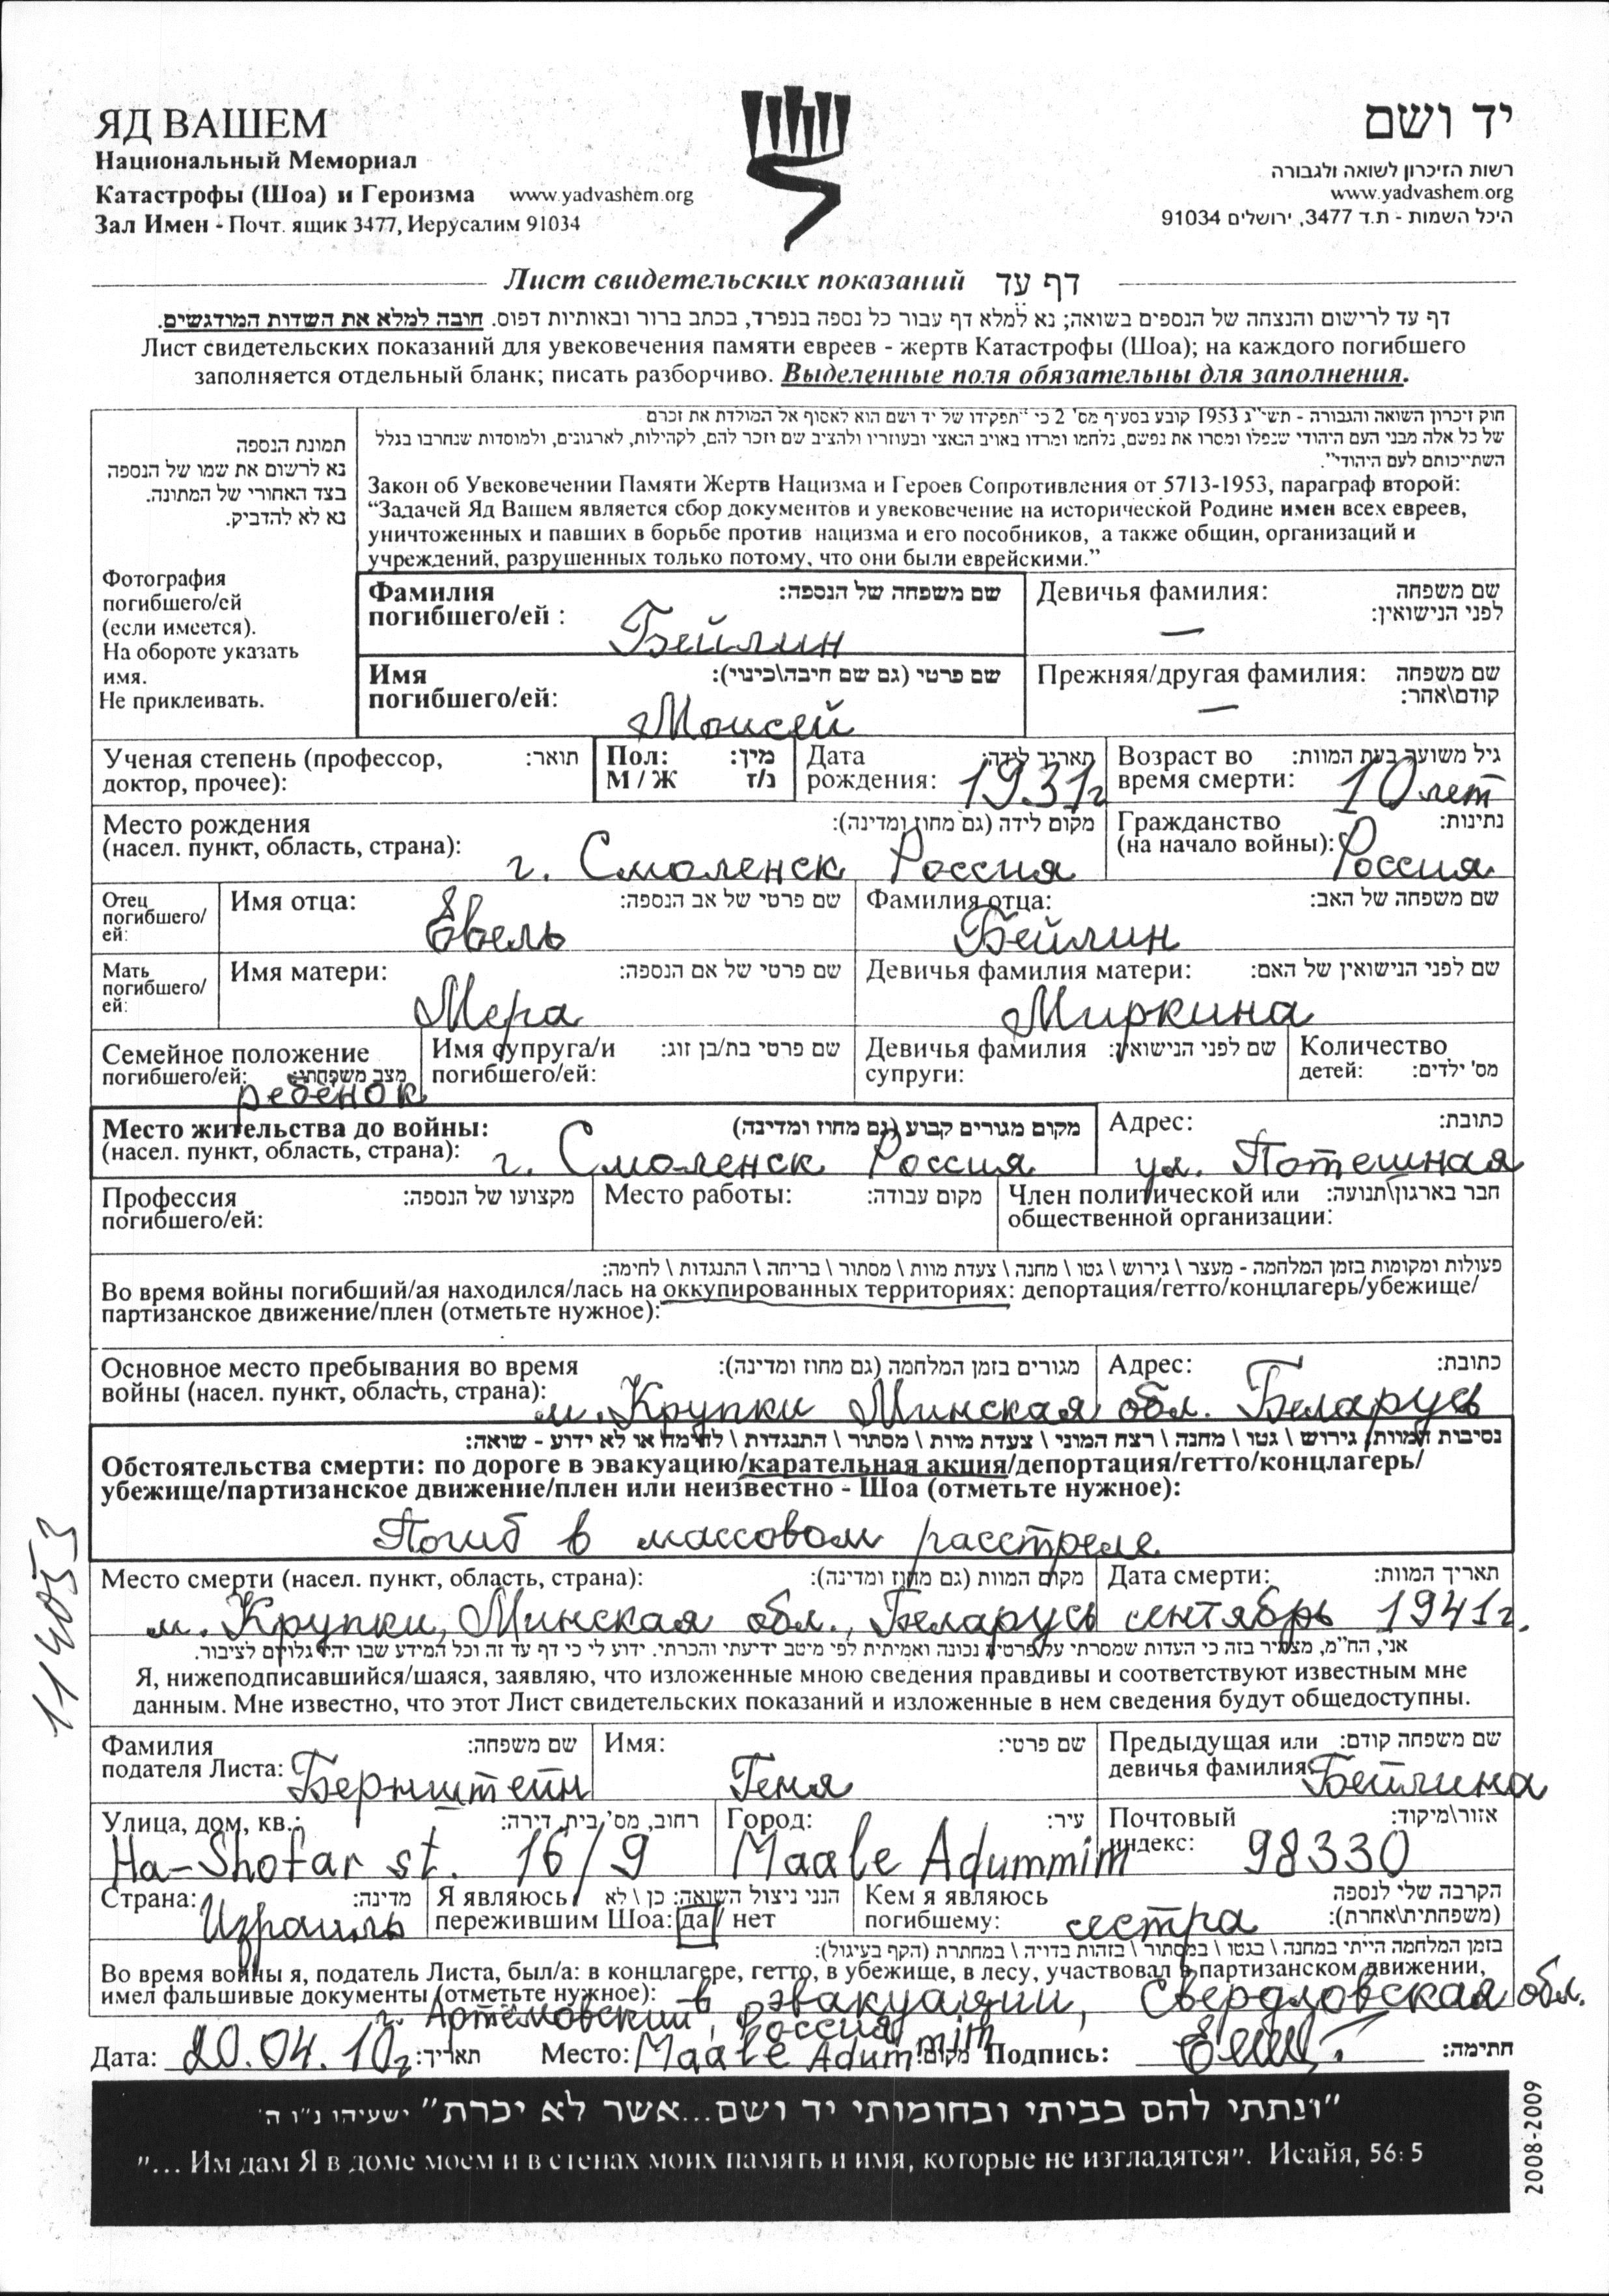 ЯД ВАШЕМ
Национальный Мемориал
Катастрофы (Шоа) и Героизма www.yadvashem.org
Зал Имен - Почт. ящик 3477, Иерусалим 91034
יד ושם
רשות הזיכרון לשואה ולגבורה
www.yadvashem.org
היכל השמות - ת.ד 3477, ירושלים 91034
Лист свидетельских показаний דף עד
דף עד לרישום והנצחה של הנספים בשואה; נא למלא דף עבור כל נספה בנפרד, בכתב ברור ובאותיות דפוס. חובה למלא את השדות המודגשים.
Лист свидетельских показаний для увековечения памяти евреев - жертв Катастрофы (Шоа); на каждого погибшего
заполняется отдельный бланк; писать разборчиво. Выделенные поля обязательны для заполнения.
תמונת הנספה
נא לרשום את שמו של הנספה
בצד האחורי של המתונה.
נא לא להדביק.
Фотография
погибшего/ей
(если имеется).
На обороте указать
имя.
Не приклеивать.
חוק זיכרון השואה והגבורה - תשי"ג 1953 קובע בסעיף מס' 2 כי "תפקידו של יד ושם הוא לאסוף אל המולדת את זכרם
של כל אלה מבני העם היהודי שנפלו ומסרו את נפשם, נלחמו ומרדו באויב הנאצי ובעוזריו ולהציב שם וזכר להם, לקהילות, לארגונים, ולמוסדות שנחרבו בגלל
השתייכותם לעם היהודי".
Закон об Увековечении Памяти Жертв Нацизма и Героев Сопротивления от 5713-1953, параграф второй:
"Задачей Яд Вашем является сбор документов и увековечение на исторической Родине имен всех евреев,
уничтоженных и павших в борьбе против нацизма и его пособников, а также общин, организаций и
учреждений, разрушенных только потому, что они были еврейскими."
Фамилия שם משפחה של הנספה:
погибшего/ей :
Бейлин
Девичья фамилия: שם משפחה
לפני הנישואין:
—
Имя שם פרטי (גם שם חיבה\כינוי):
погибшего/ей:
Моисей
Прежняя/другая фамилия: שם משפחה
קודם\אחר:
—
Ученая степень (профессор, תואר:
доктор, прочее):
Пол: מין:
М / Ж ז/נ
Дата תאריך לידה:
рождения: 1931г
Возраст во גיל משוער בעת המוות:
время смерти: 10 лет
Место рождения מקום לידה (גם מחוז ומדינה):
(насел. пункт, область, страна):
г. Смоленск Россия
Гражданство נתינות:
(на начало войны): Россия
Отец
погибшего/
ей:
Имя отца: שם פרטי של אב הנספה:
Евель
Фамилия отца: שם משפחה של האב:
Бейлин
Мать
погибшего/
ей:
Имя матери: שם פרטי של אם הנספה:
Мера
Девичья фамилия матери: שם לפני הנישואין של האם:
Миркина
Семейное положение
погибшего/ей: מצב משפחתי:
ребёнок
Имя супруга/и שם פרטי בת/בן זוג:
погибшего/ей:
Девичья фамилия שם לפני הנישואין:
супруги:
Количество
детей: מס' ילדים:
Место жительства до войны: מקום מגורים קבוע (גם מחוז ומדינה)
(насел. пункт, область, страна): г. Смоленск Россия
Адрес: כתובת:
ул. Потешная
Профессия מקצועו של הנספה:
погибшего/ей:
Место работы: מקום עבודה:
Член политической или חבר בארגון\תנועה:
общественной организации:
פעולות ומקומות בזמן המלחמה - מעצר \ גירוש \ גטו \ מחנה \ צעדת מוות \ מסתור \ בריחה \ התנגדות \ לחימה:
Во время войны погибший/ая находился/лась на оккупированных территориях: депортация/гетто/концлагерь/убежище/
партизанское движение/плен (отметьте нужное):
Основное место пребывания во время מגורים בזמן המלחמה (גם מחוז ומדינה):
войны (насел. пункт, область, страна):
Адрес: כתובת:
м. Крупки Минская обл. Беларусь
נסיבות המוות: גירוש \ גטו \ מחנה \ רצח המוני \ צעדת מוות \ מסתור \ התנגדות \ לחימה או לא ידוע - שואה:
Обстоятельства смерти: по дороге в эвакуацию/карательная акция/депортация/гетто/концлагерь/
убежище/партизанское движение/плен или неизвестно - Шоа (отметьте нужное):
Погиб в массовом расстреле
Место смерти (насел. пункт, область, страна): מקום המוות (גם מחוז ומדינה):
м. Крупки, Минская обл., Беларусь
Дата смерти: תאריך המוות:
сентябрь 1941г.
אני, הח"מ, מצהיר בזה כי העדות שמסרתי על פרטיה נכונה ואמיתית לפי מיטב ידיעתי והכרתי. ידוע לי כי דף עד זה וכל המידע שבו יהיו גלויים לציבור.
Я, нижеподписавшийся/шаяся, заявляю, что изложенные мною сведения правдивы и соответствуют известным мне
данным. Мне известно, что этот Лист свидетельских показаний и изложенные в нем сведения будут общедоступны.
Фамилия שם משפחה:
подателя Листа: Бернштейн
Имя: שם פרטי:
Геня
Предыдущая или שם משפחה קודם:
девичья фамилия: Бейлина
Улица, дом, кв.: רחוב, מס' בית, דירה:
Ha-Shofar st. 16/9
Город: עיר:
Maale Adummim
Почтовый אזור\מיקוד:
индекс: 98330
Страна: מדינה:
Израиль
Я являюсь הנני ניצול השואה: כן \ לא
пережившим Шоа: да / нет
Кем я являюсь הקרבה שלי לנספה
погибшему: (משפחתית\אחרת):
сестра
בזמן המלחמה הייתי במחנה \ בגטו \ במסתור \ בזהות בדויה \ במחתרת (הקף בעיגול):
Во время войны я, податель Листа, был/а: в концлагере, гетто, в убежище, в лесу, участвовал в партизанском движении,
имел фальшивые документы (отметьте нужное): в эвакуации, Свердловская обл.
г. Артёмовский, Россия
Дата: 20.04.10г תאריך: Место: Maale Adummim מקום: Подпись: חתימה:
"ונתתי להם בביתי ובחומותי יד ושם...אשר לא יכרת" ישעיהו נ"ו ה'
"... Им дам Я в доме моем и в стенах моих память и имя, которые не изгладятся". Исайя, 56: 5
114053
2008-2009